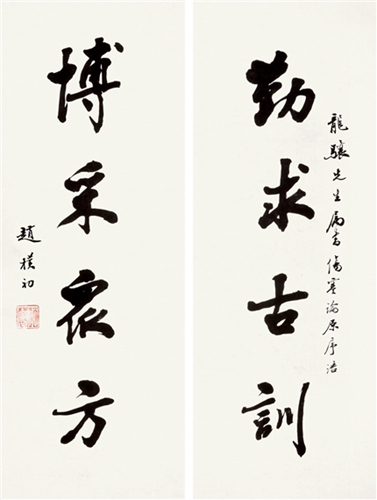 龍驤先生属書傷寒論原序語
勤求古訓
博采眾方
趙樸初